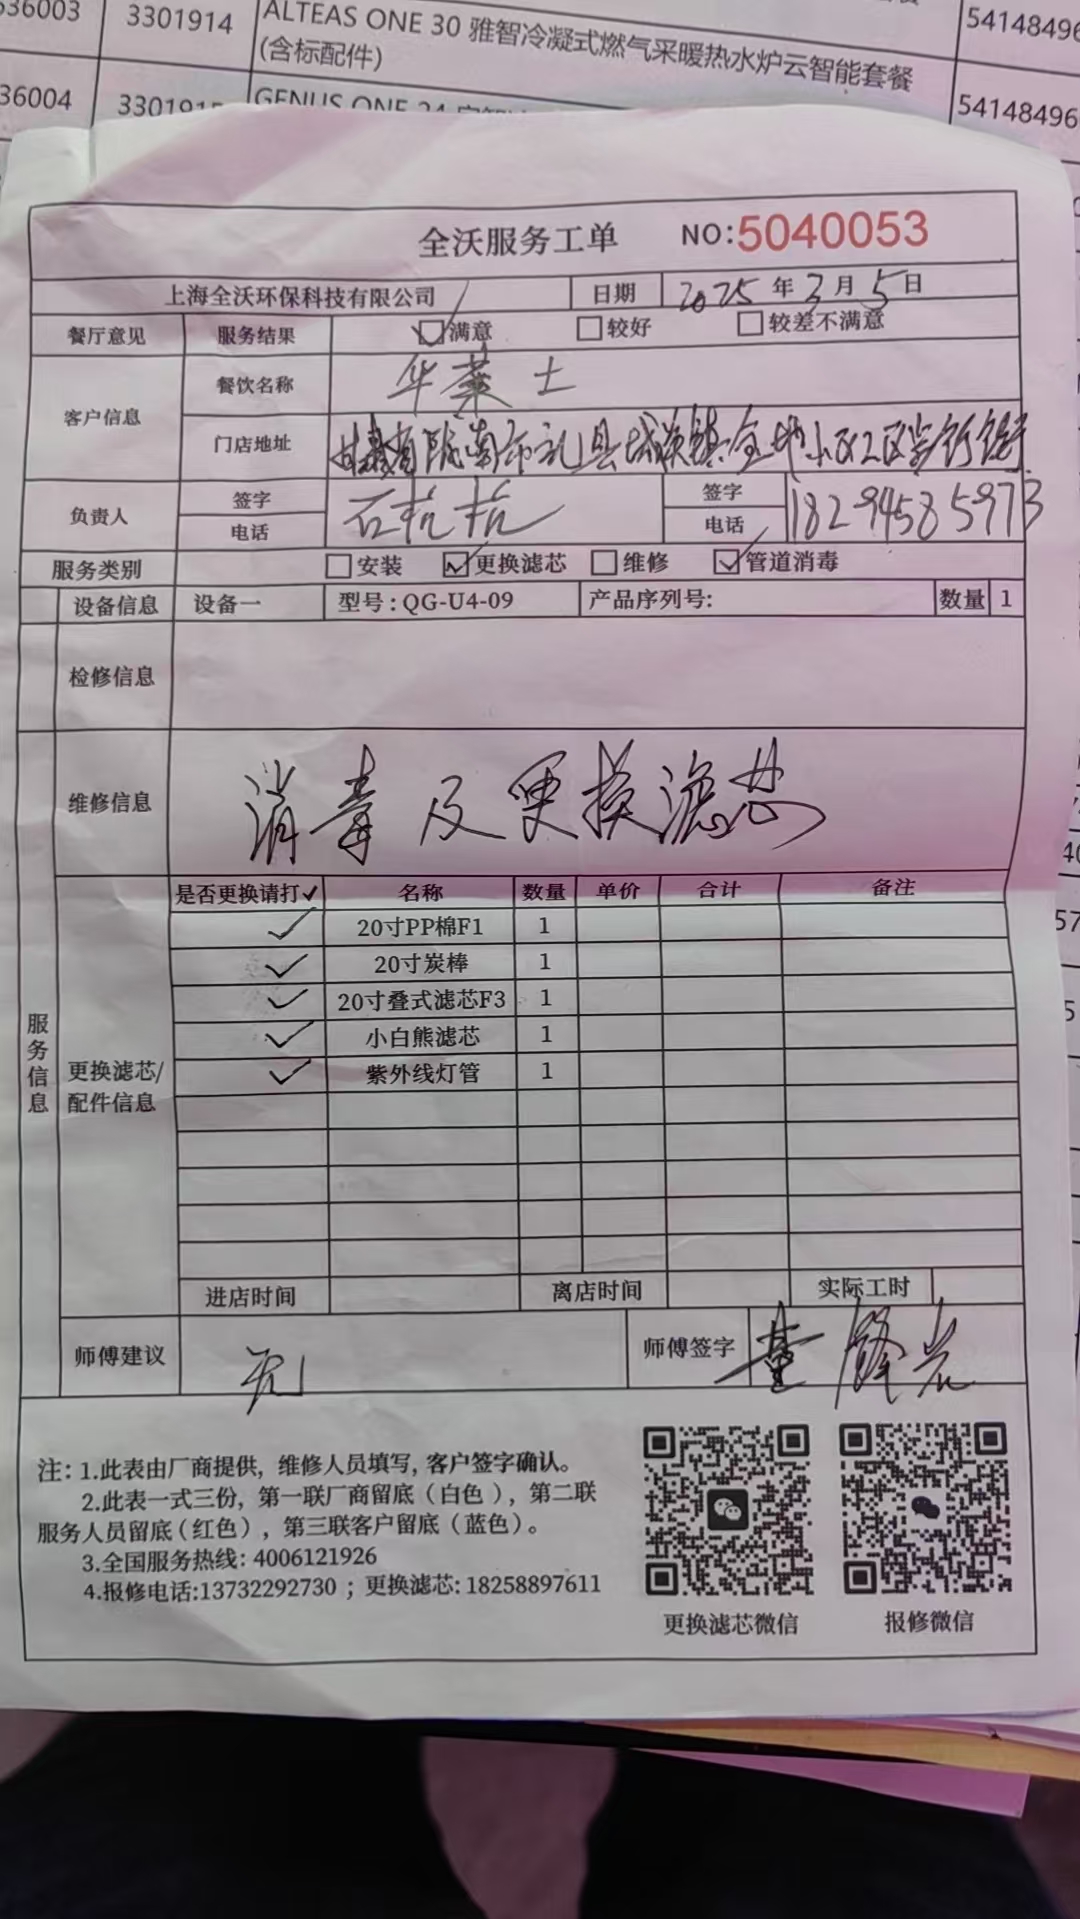 36003 3301914 ALTEAS ONE 30 雅智冷凝式燃气采暖热水炉云智能套餐 54148496
(含标配件)
36004 54148496
全沃服务工单 NO:5040053
上海全沃环保科技有限公司 日期 2025年3月5日
餐厅意见 服务结果 满意 较好 较差不满意
客户信息 餐饮名称 华莱士
门店地址 甘肃省陇南市礼县城关镇金地小区
负责人 签字 签字
电话 电话 18294585973
服务类别 安装 更换滤芯 维修 管道消毒
设备信息 设备一 型号:QG-U4-09 产品序列号: 数量 1
检修信息
维修信息 消毒及更换滤芯
服务信息
更换滤芯/配件信息
是否更换请打✓ 名称 数量 单价 合计 备注
✓ 20寸PP棉F1 1
✓ 20寸炭棒 1
✓ 20寸叠式滤芯F3 1
✓ 小白熊滤芯 1
✓ 紫外线灯管 1
进店时间 离店时间 实际工时
师傅建议 无 师傅签字
注: 1.此表由厂商提供, 维修人员填写, 客户签字确认。
2.此表一式三份, 第一联厂商留底(白色), 第二联
服务人员留底(红色), 第三联客户留底(蓝色)。
3.全国服务热线: 4006121926
4.报修电话:13732292730 ; 更换滤芯: 18258897611
更换滤芯微信 报修微信